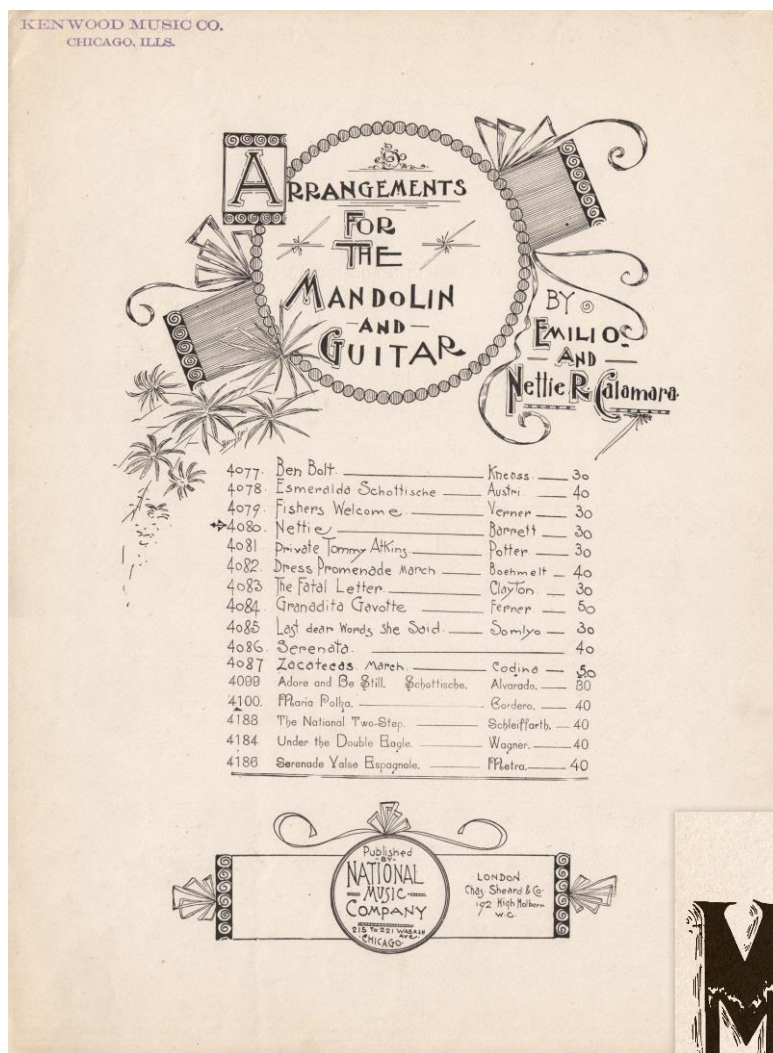 KENWOOD MUSIC CO.
CHICAGO, ILLS.
ARRANGEMENTS
FOR
THE
MANDOLIN
AND
GUITAR
BY
EMILIO
AND
Nettie R. Calamara.
4077. Ben Bolt. Kneass. 30
4078. Esmeralda Schottische Austri. 40
4079. Fishers Welcome. Verner 30
4080. Nettie Barrett 30
4081 Private Tommy Atkins Potter 30
4082. Dress Promenade March Boehmelt 40
4083. The Fatal Letter. Clayton. 30
4084. Granadita Gavotte Ferner 50
4085 Last dear Words she Said. Somlyo 30
4086. Serenata. 40
4087 Zacatecas March. Codina 50
4099 Adore and Be Still. Schottische. Alvarado. 30
4100. Maria Polka. Cordero. 40
4183 The National Two-Step. Schleiffarth. 40
4184 Under the Double Eagle. Wagner. 40
4186 Serenade Valse Espagnole. Metra. 40
Published
BY
NATIONAL
MUSIC
COMPANY
215 TO 221 WABASH
AVE.
CHICAGO.
LONDON
Chas. Sheard & Co.
192 High Holborn
W.C.
M